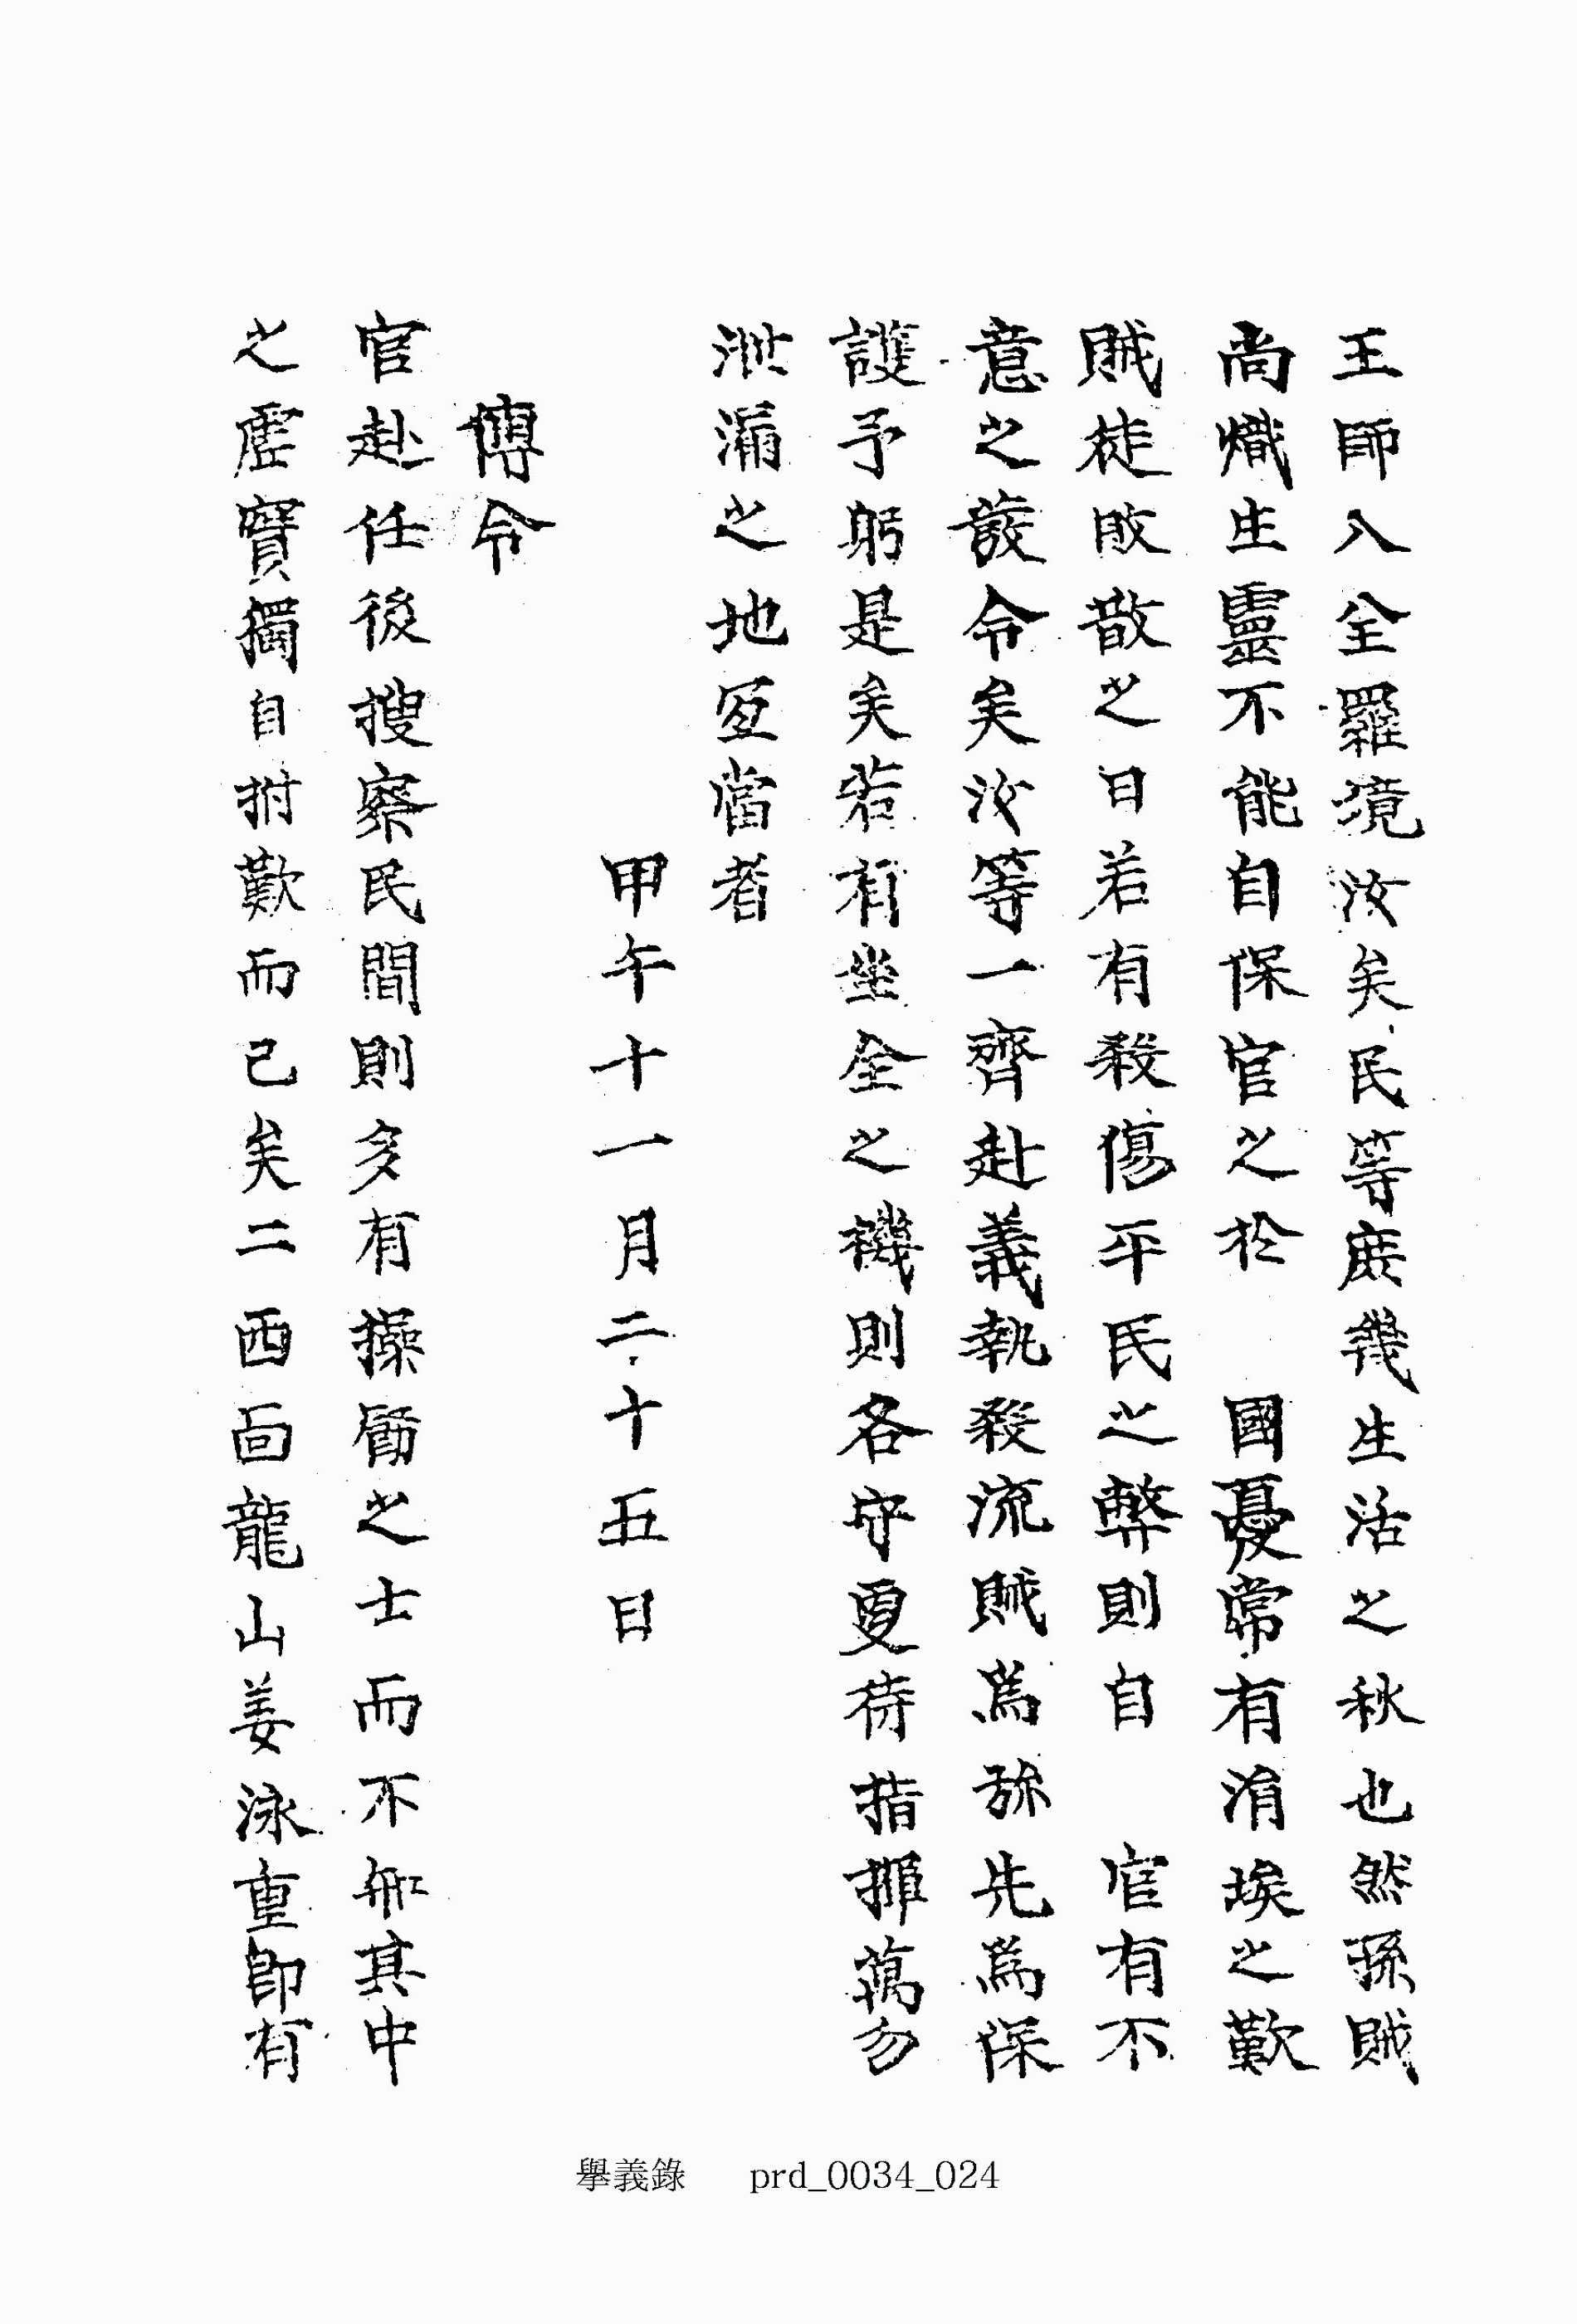 王師入全羅境汝矣民等庶幾生活之秋也然孫賊
尚熾生靈不能自保官之於 國憂常有涓埃之歎
賊徒敗散之日若有殺傷平民之弊則自 官有不
意之發令矣汝等一齊赴義執殺流賊爲旀先爲保
護予躬是矣若有坐全之機則各守更待指揮萬勿
泄漏之地宜當者
甲午十一月二十五日
傳令
官赴任後搜察民間則多有操觚之士而不知其中
之虛實獨自拊歎而已矣二西面龍山姜泳重卽有
擧義錄 prd_0034_024